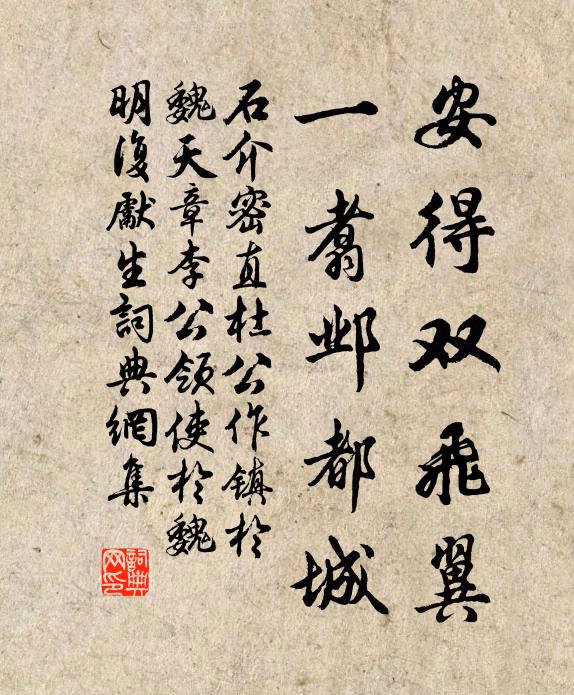 安得双飞翼
一翥邺都城
石介密直杜公作镇於
魏天章李公领使於魏
明復獻生詞典網集
詞典网印